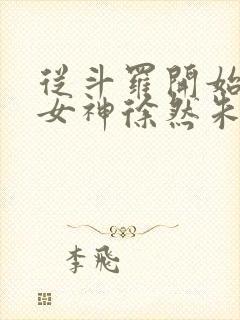 從斗羅開始
女神徐然朱
李飛